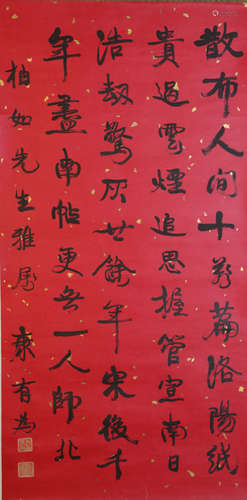 散布人间十万篇洛陽紙
貴過雲煙追思握管宣南日
浩劫驚灰廿餘年宋後千
年盡南帖更無一人師北
柏如先生雅屬 康有為